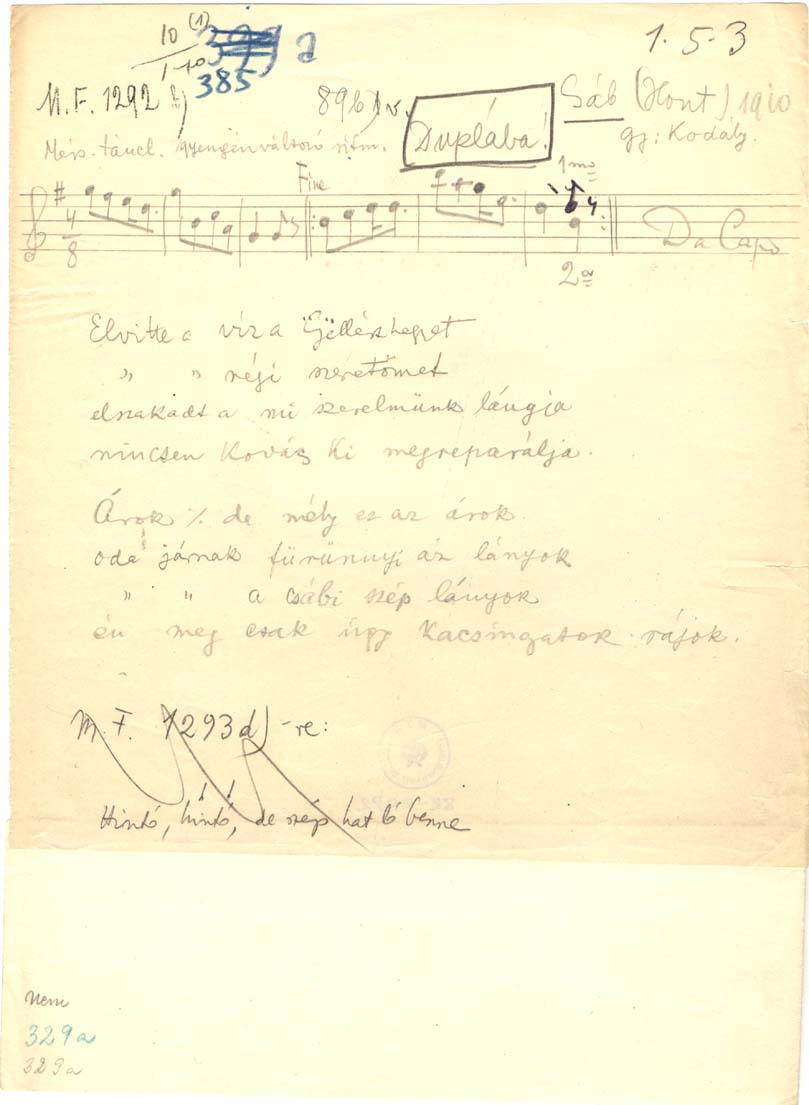 10 (1) 399 a
1-10
385
1. 5. 3
M.F. 1292
896
Duplába!
Sáb (Hont) 1910
gy: Kodály.
Mérs. táncl. gyengén változó ritm.
Fine
1 mo
4
8
Da Capo
2a
Elvitte a víz a Gellérthegyet
" " régi szeretőmet
elszakadt a mi szerelmünk láncja
nincsen Kovács Ki megreparálja.
Árok ·/. de mély ez az árok
oda járnak fürünnyi az lányok
" " a csábi szép lányok
én meg csak úgy kacsingatok rájok.
M.F. 1293 d) -re:
Hintó, hintó, de szép hat ló benne
Nem
329a
329a